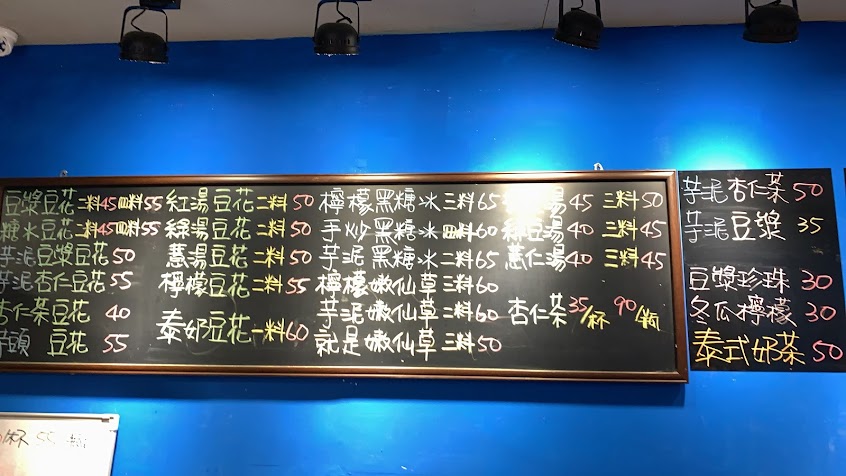 豆漿豆花 二料45 四料55
糖水豆花 二料45 四料55
芋泥豆漿豆花 50
芋泥杏仁豆花 55
杏仁茶豆花 40
芋頭 豆花 55
紅湯豆花 二料 50
綠湯豆花 二料 50
薏湯豆花 二料 50
檸檬豆花 二料 55
泰奶豆花 一料60
檸檬黑糖冰 三料65
手炒黑糖冰 四料60
芋泥黑糖冰 二料65
檸檬嫩仙草 三料60
芋泥嫩仙草 二料60
就是嫩仙草 三料50
湯45 三料50
綠豆湯40 三料45
薏仁湯40 三料45
杏仁茶 35/杯 90/瓶
芋泥杏仁茶 50
芋泥豆漿 35
豆漿珍珠 30
冬瓜檸檬 30
泰式奶茶 50
/杯 55